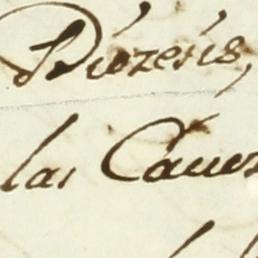 Diozesis,
las Caus